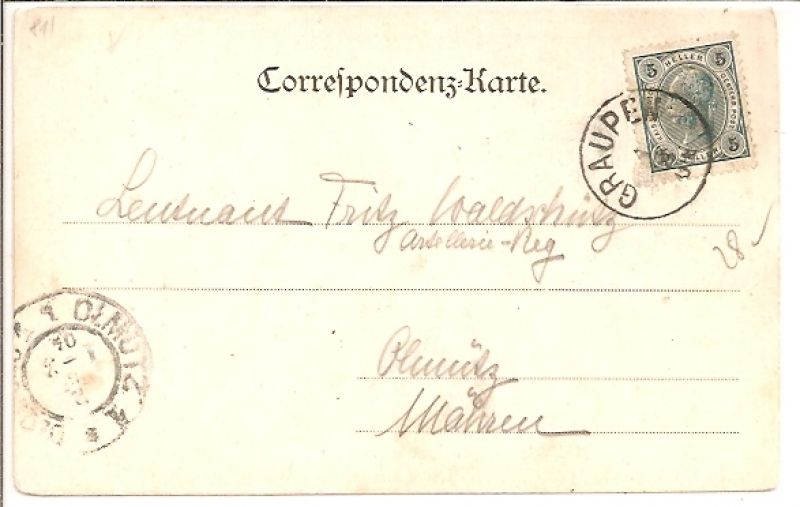 Correspondenz-Karte.
5 HELLER 5
5
GRAUPEN
Leutnant Fritz Waldschütz
Artellerie-Reg
28
1 OLMÜTZ 1
Olmütz
Mähren